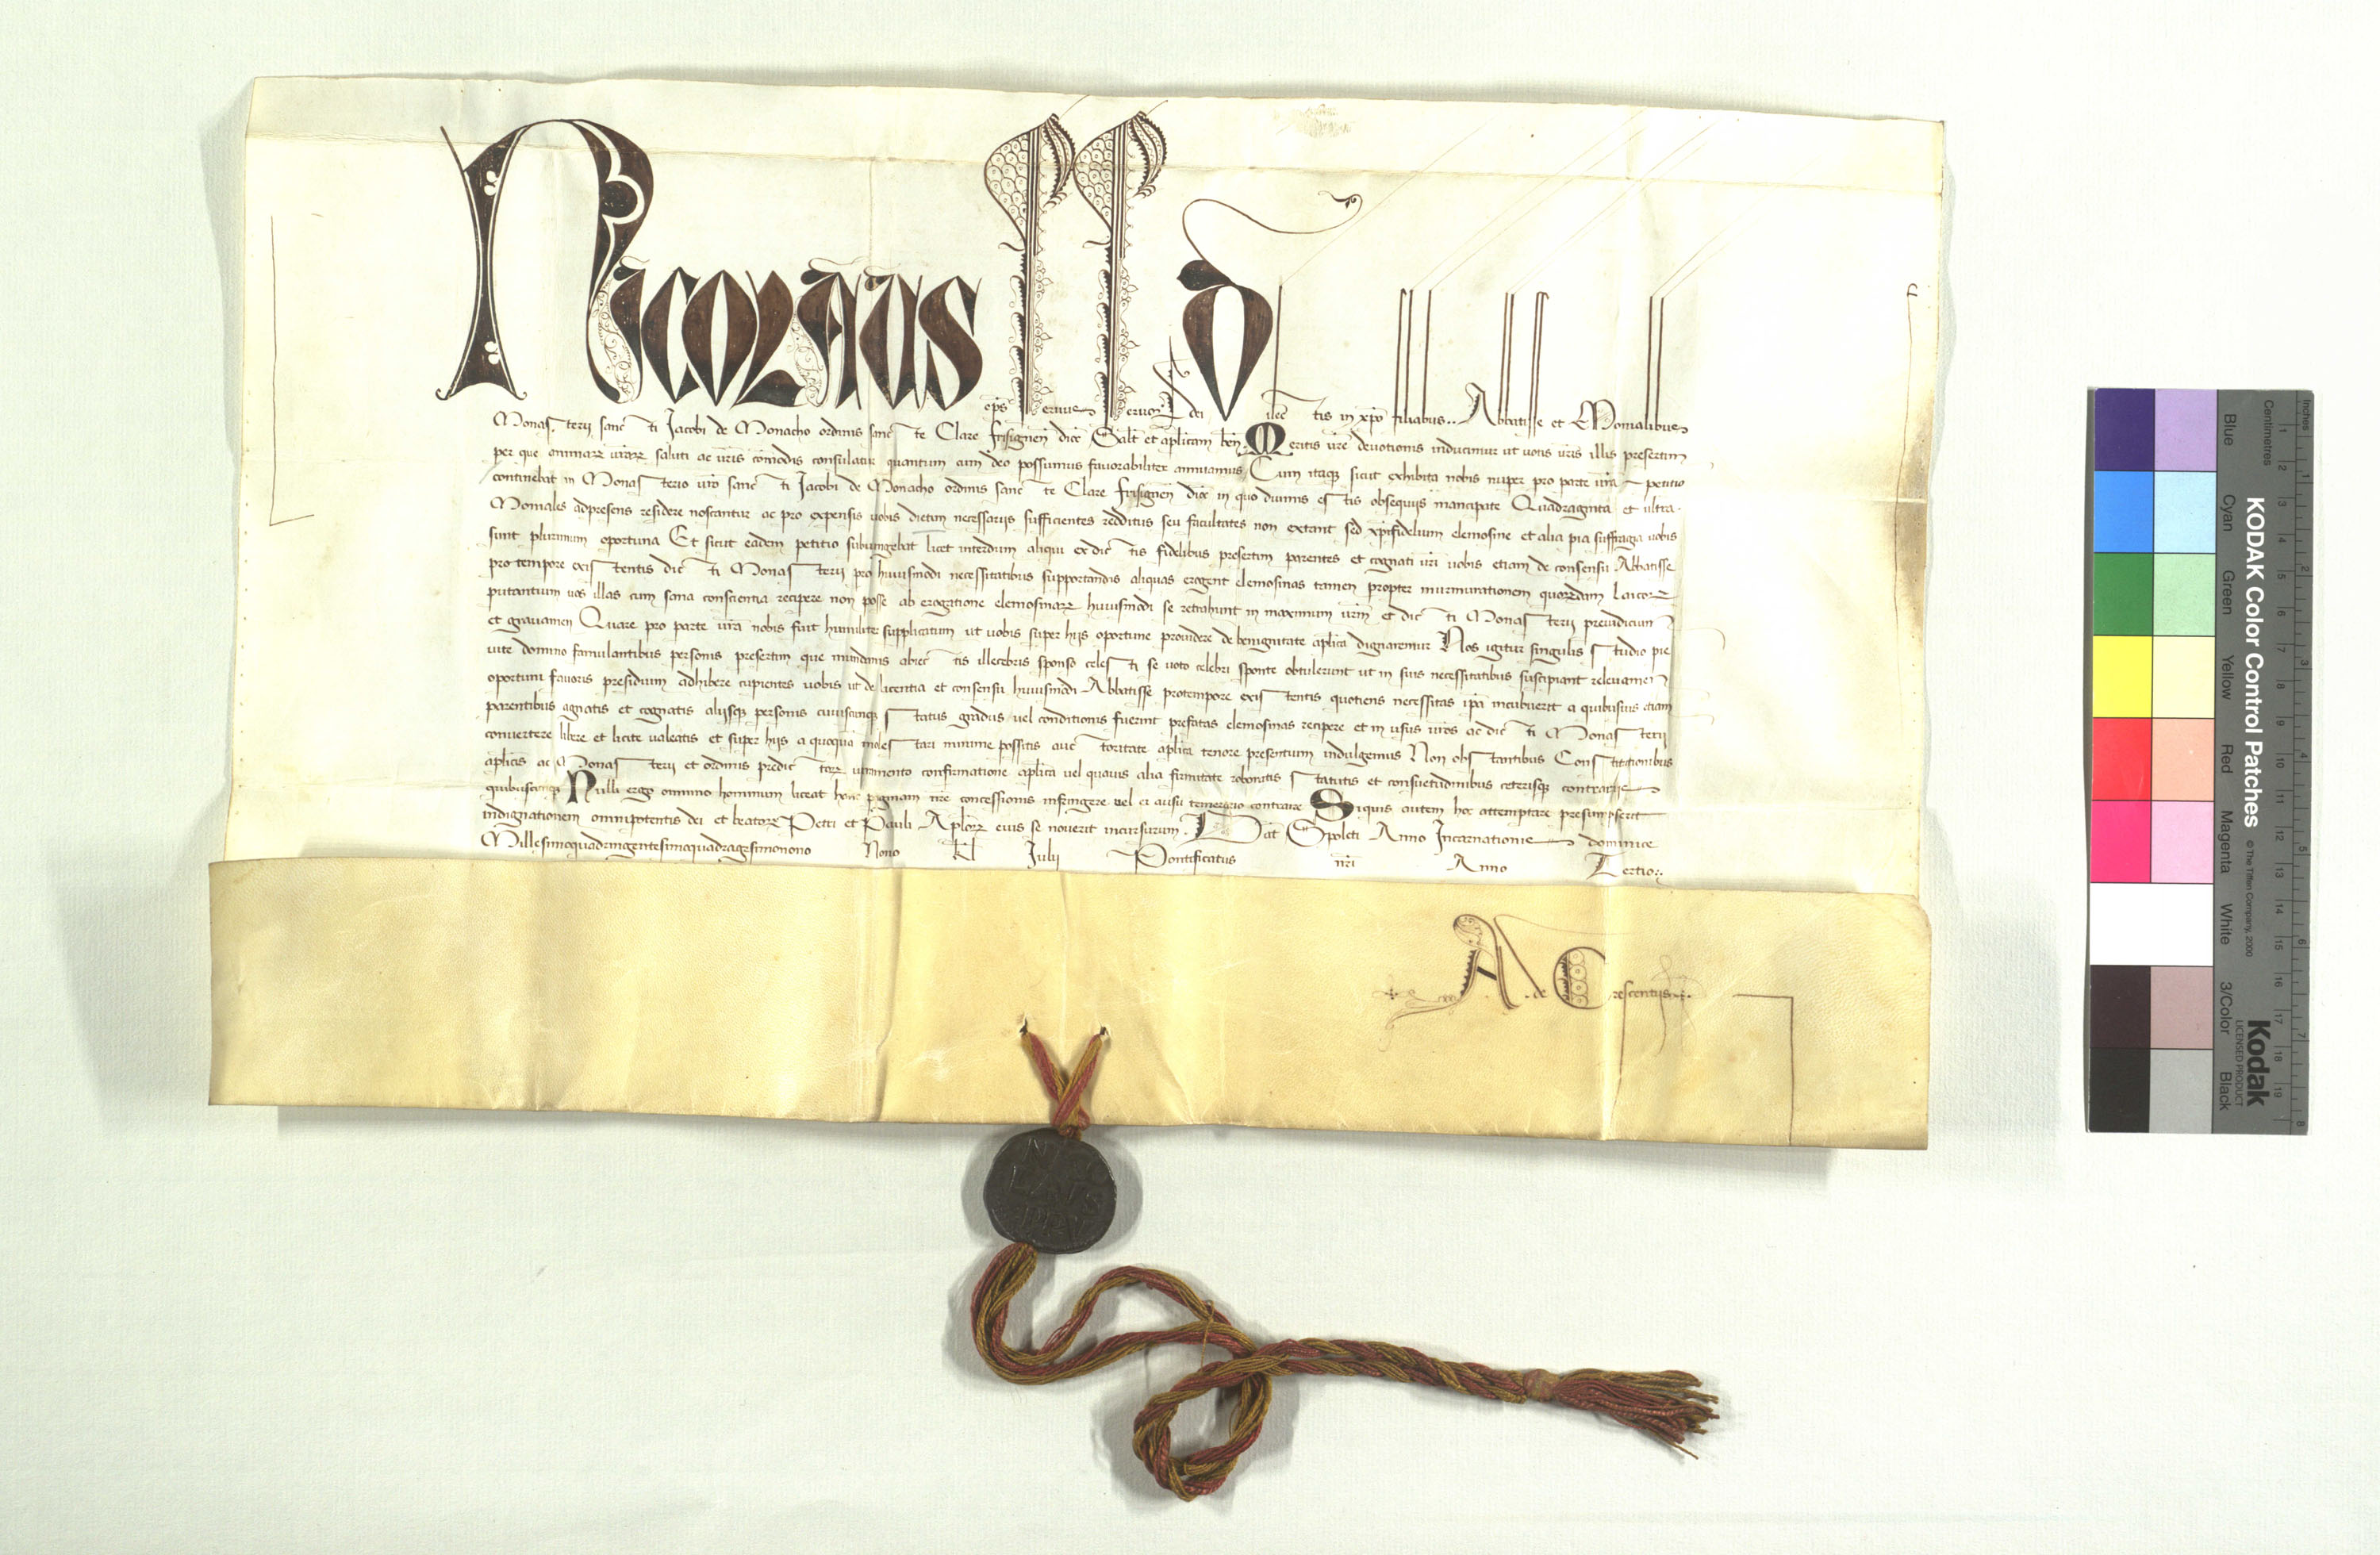 Nicolaus eps Seruus Seruoꝝ dei Dilectis in xpo filiabus .. Abbatisse et Monialibus
Monasterii sancti Jacobi de Monacho ordinis sancte Clare frisignen dioc Salt et aplicam ben. Meritis vre deuotionis inducimur ut uotis uris illis presertim
per que animarꝝ urarꝝ saluti ac uris comodis consulatur quantum cum deo possumus fauorabiliter annuamus Cum itaqꝫ sicut exhibita nobis nuper pro parte ura petitio
continebat in Monasterio uro sancti Jacobi de Monacho ordinis sancte Clare frisignen dioc in quo diuinis estis obsequijs mancipate Quadraginta et ultra
Moniales adpresens residere noscantur ac pro expensis uobis dietim necessarijs sufficientes redditus seu facultates non extant sed xpifidelium elemosine et alia pia suffragia uobis
sunt plurimum oportuna Et sicut eadem petitio subiungebat licet interdum aliqui ex dictis fidelibus presertim parentes et cognati uri uobis etiam de consensu Abbatisse
pro tempore existentis dicti Monasterii pro huiusmodi necessitatibus supportandis aliquas erogent elemosinas tamen propter murmurationem quorundam laicorꝝ
putantium uos illas cum sana conscientia recipere non posse ab erogatione elemosinarꝝ huiusmodi se retrahunt in maximum urm et dicti Monasterii preiudicium
et grauamen Quare pro parte ura nobis fuit humiliter supplicatum ut uobis super hijs oportune prouidere de benignitate aplica dignaremur Nos igitur singulis studio pie
uite domino famulantibus personis presertim que mundanis abiectis illecebris sponso celesti se uoto celebri sponte obtulerunt ut in suis necessitatibus suscipiant releuamen
oportuni fauoris presidium adhibere cupientes uobis ut de licentia et consensu huiusmodi Abbatisse protempore existentis quotiens necessitas ipa incubuerit a quibusuis etiam
parentibus agnatis et cognatis alijsqꝫ personis cuiuscunqꝫ status gradus uel conditionis fuerint prefatas elemosinas recipere et in usus uros ac dicti Monasterii
conuertere libere et licite ualeatis et super hijs a quoquam molestari minime possitis auctoritate aplica tenore presentium indulgemus Non obstantibus Constitutionibus
aplicis ac Monasterii et ordinis predictorꝝ iuramento confirmatione aplica uel quauis alia firmitate roboratis statutis et consuetudinibus ceterisqꝫ contrarijs
quibuscunqꝫ Nulli ergo omnino hominum liceat hanc paginam nre concessionis infringere uel ei ausu temerario contraire Siquis autem hoc attemptare presumpserit
indignationem omnipotentis dei et beatorꝝ Petri et Pauli Aplorꝝ eius se nouerit incursurum. Dat Spoleti Anno Incarnationis dominice
Millesimoquadringentesimoquadragesimonono Nono kl Julii Pontificatus nri Anno Tertio
A. de Crescentijs
NICO
LAVS
PP V
KODAK Color Control Patches
© The Tiffen Company, 2000
Kodak
LICENSED PRODUCT
Inches 1 2 3 4 5 6 7 8
Centimetres 1 2 3 4 5 6 7 8 9 10 11 12 13 14 15 16 17 18 19
Blue Cyan Green Yellow Red Magenta White 3/Color Black